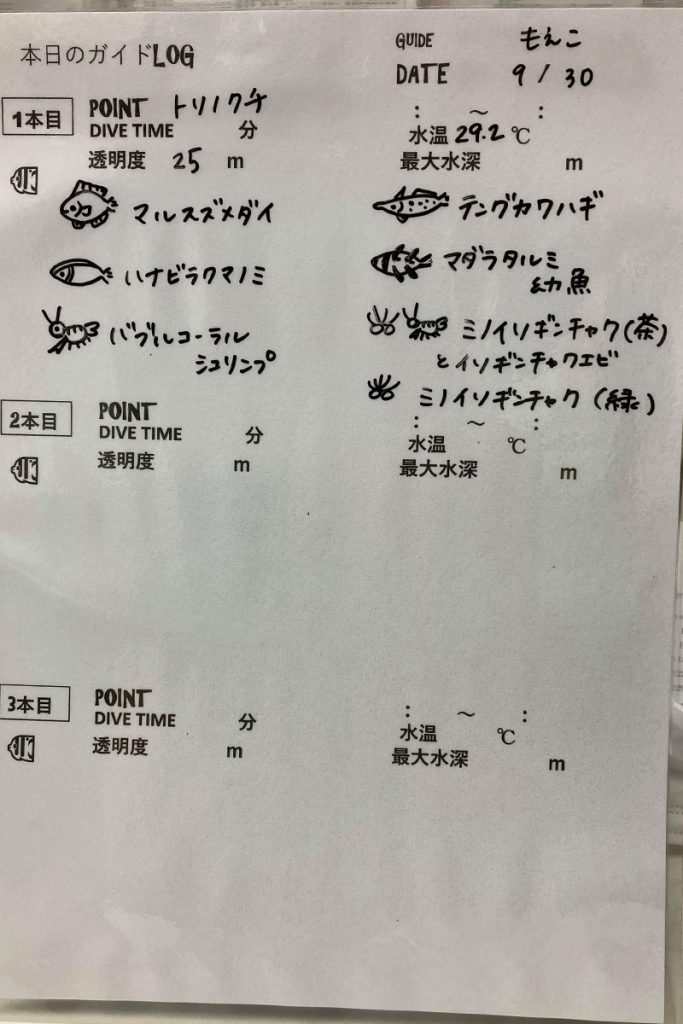 本日のガイドLOG
GUIDE もえこ
DATE 9/30
1本目 POINT トリノクチ : ～ :
DIVE TIME 分 水温 29.2 ℃
透明度 25 m 最大水深 m
マルスズメダイ テングカワハギ
ハナビラクマノミ マダラタルミ
幼魚
バブルコーラル ミノイソギンチャク(茶)
シュリンプ とイソギンチャクエビ
ミノイソギンチャク(緑)
2本目 POINT : ～ :
DIVE TIME 分 水温 ℃
透明度 m 最大水深 m
3本目 POINT : ～ :
DIVE TIME 分 水温 ℃
透明度 m 最大水深 m